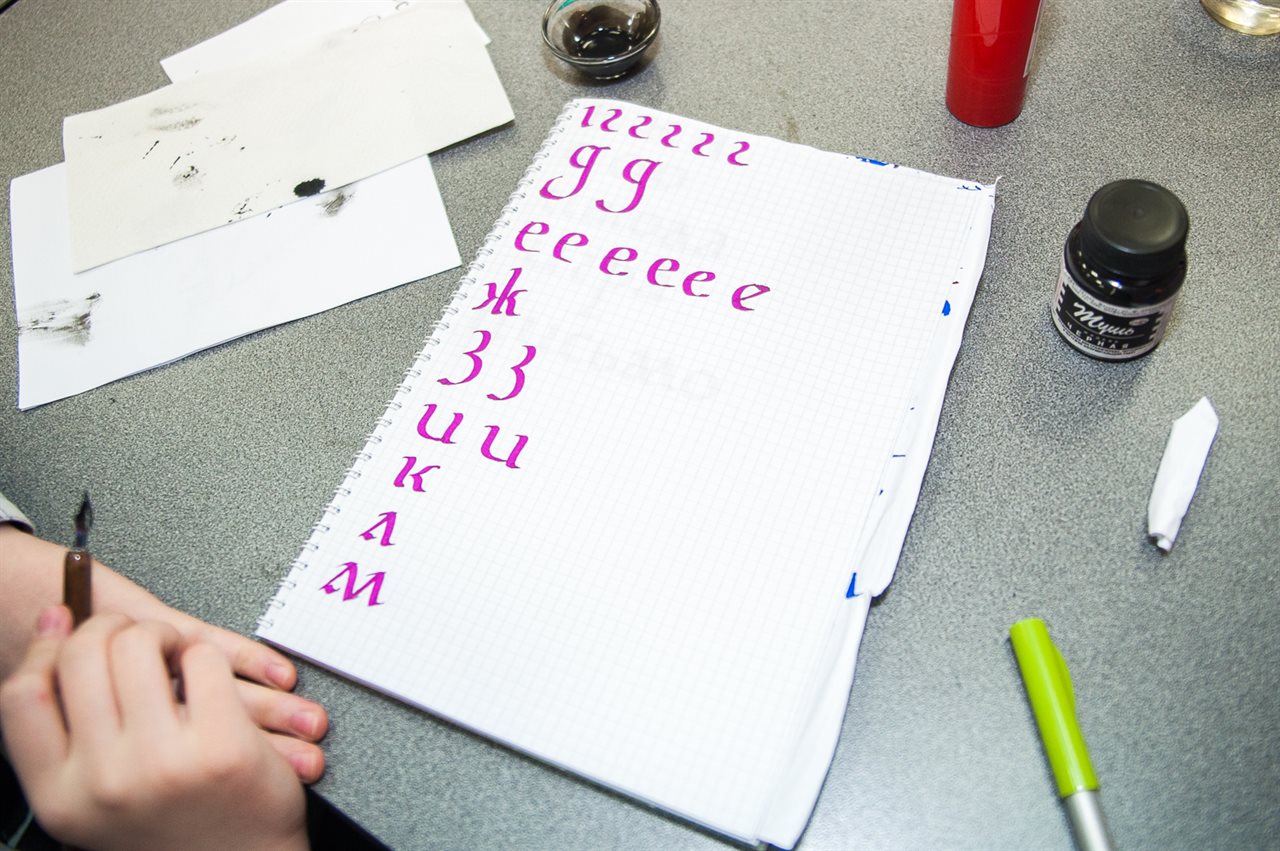 г г г г г г
д д
е е е е е е е
ж
з з
и и
к
л
м
Тушь
ЧЕРНАЯ